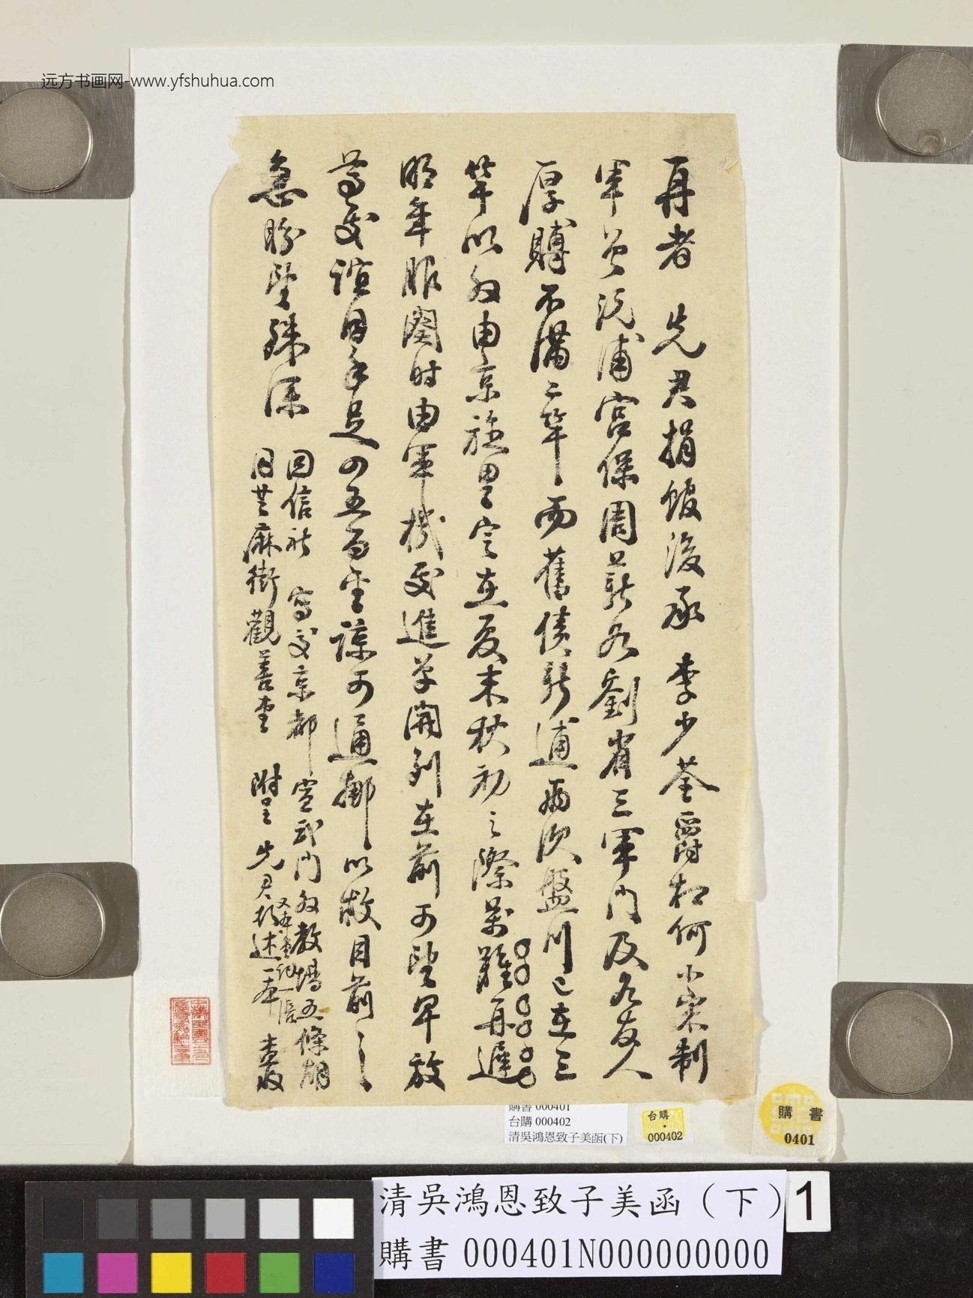 远方书画网-www.yfshuhua.com
再者 先君捐館後承 李少荃爵相何小宋制
軍曾沅浦宮保周薪劉省三軍門及友人
厚賻不滿二竿而舊債新逋兩次盤川已在三
竿以外由京旋里定在夏末秋初之際萬難再遲
明年服闋時由軍機處進單開列在前可望早放
尊處誼同手足四五百金諒可通挪以救目前之
急盼望殊深
回信祈 寫交京都宣武門外教場五條胡
同芝麻街觀善堂 附呈 先君行述一本 查收
購書 000401
台購 000402
清吳鴻恩致子美函(下)
台購
000402
購書
0401
清吳鴻恩致子美函(下)
購書 000401N000000000
1